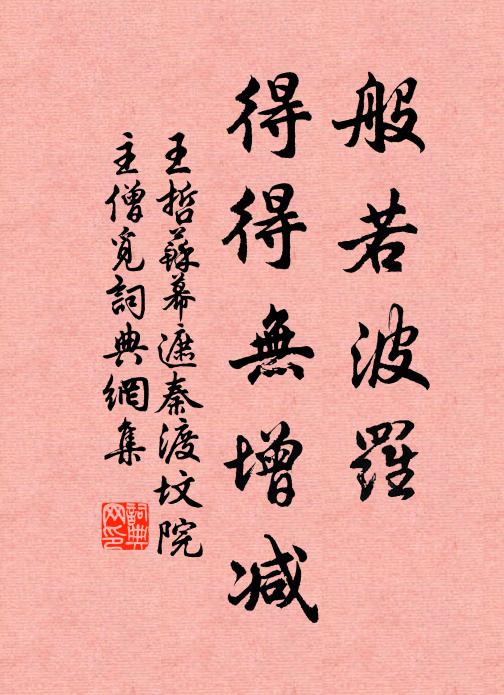 般若波羅
得得無增減
王哲蘇幕遮秦渡坟院
主僧覓詞典網集
詞典
网印